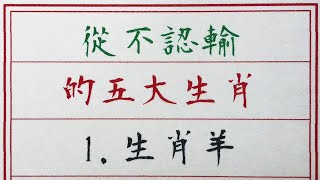 從不認輸
的五大生肖
1.生肖羊